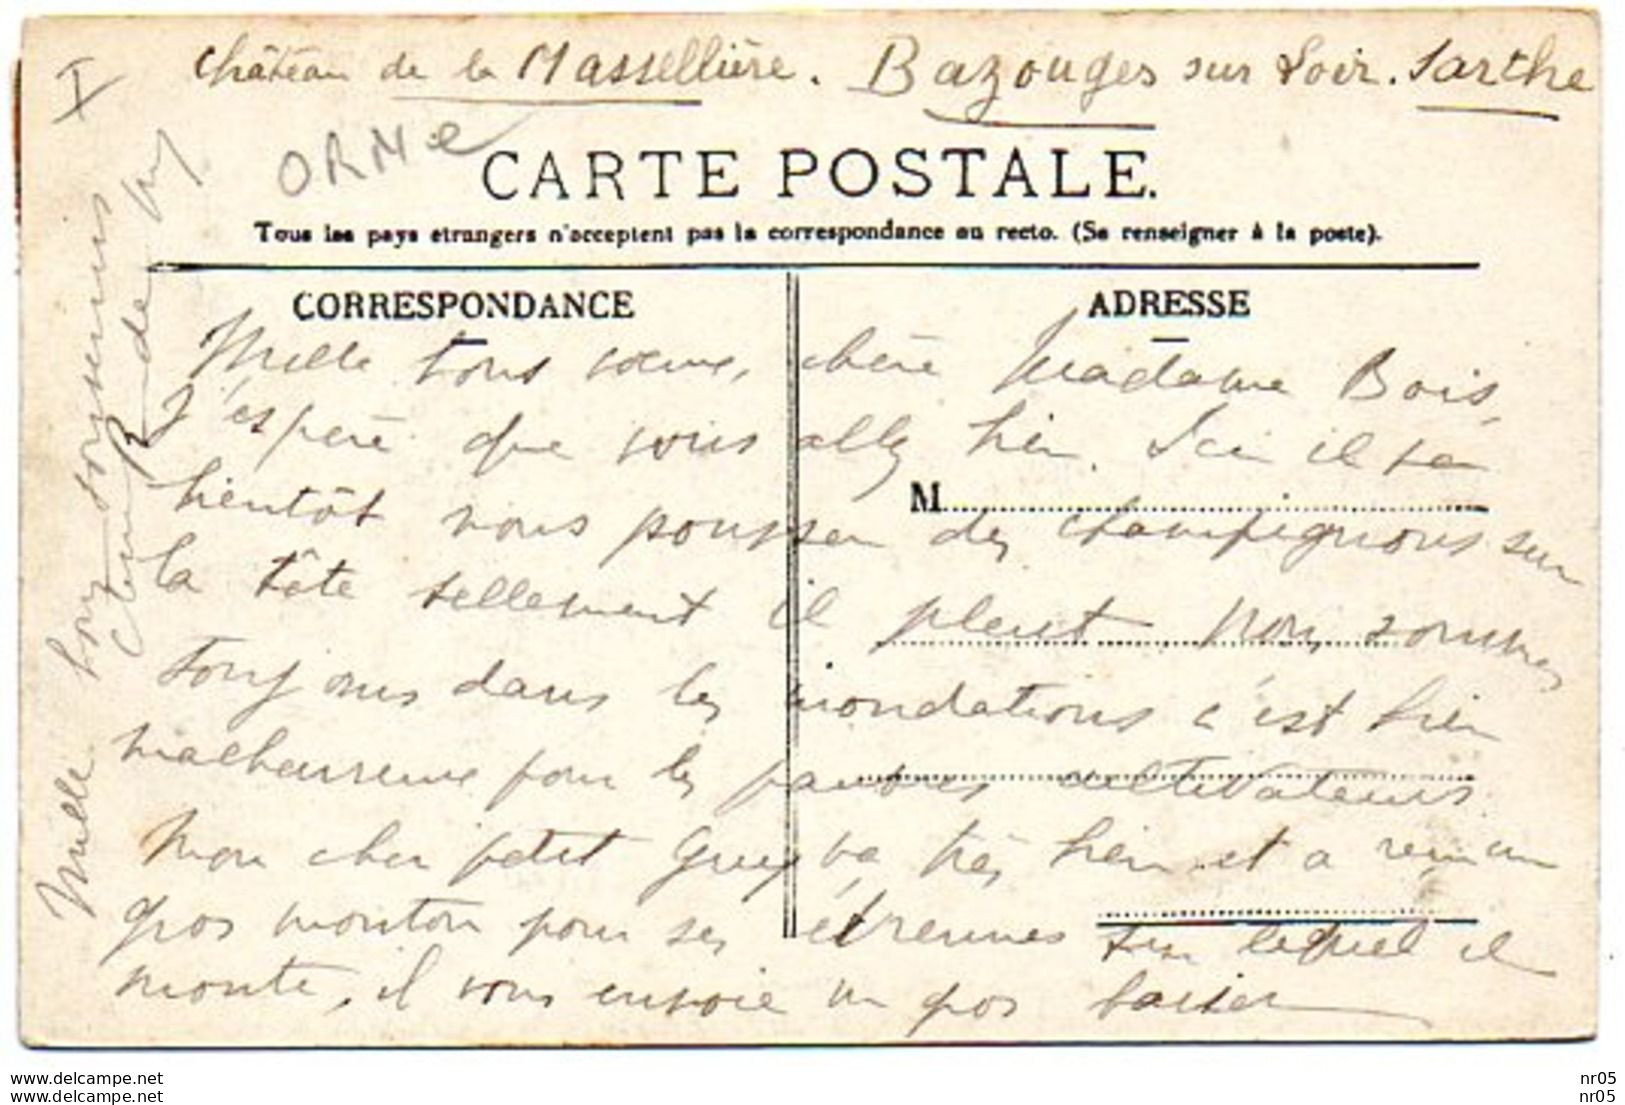 I
Château de la Massellière. Bazouges sur Loir. Sarthe
ORMe
CARTE POSTALE.
Tous les pays etrangers n'acceptent pas la correspondance au recto. (Se renseigner à la poste).
CORRESPONDANCE
ADRESSE
M
Mille bons vœux, chère Madame Bois,
J'espère que vous allez bien. Ici il va
bientôt nous pousser des champignons sur
la tête tellement il pleut. Nous sommes
toujours dans les inondations c'est bien
malheureux pour les pauvres cultivateurs
Mon cher petit Guy va très bien et a reçu un
gros mouton pour ses étrennes sur lequel il
monte, il vous envoie un gros baiser
Mille bons souvenirs
de
www.delcampe.net
www.delcampe.net
nr05
nr05